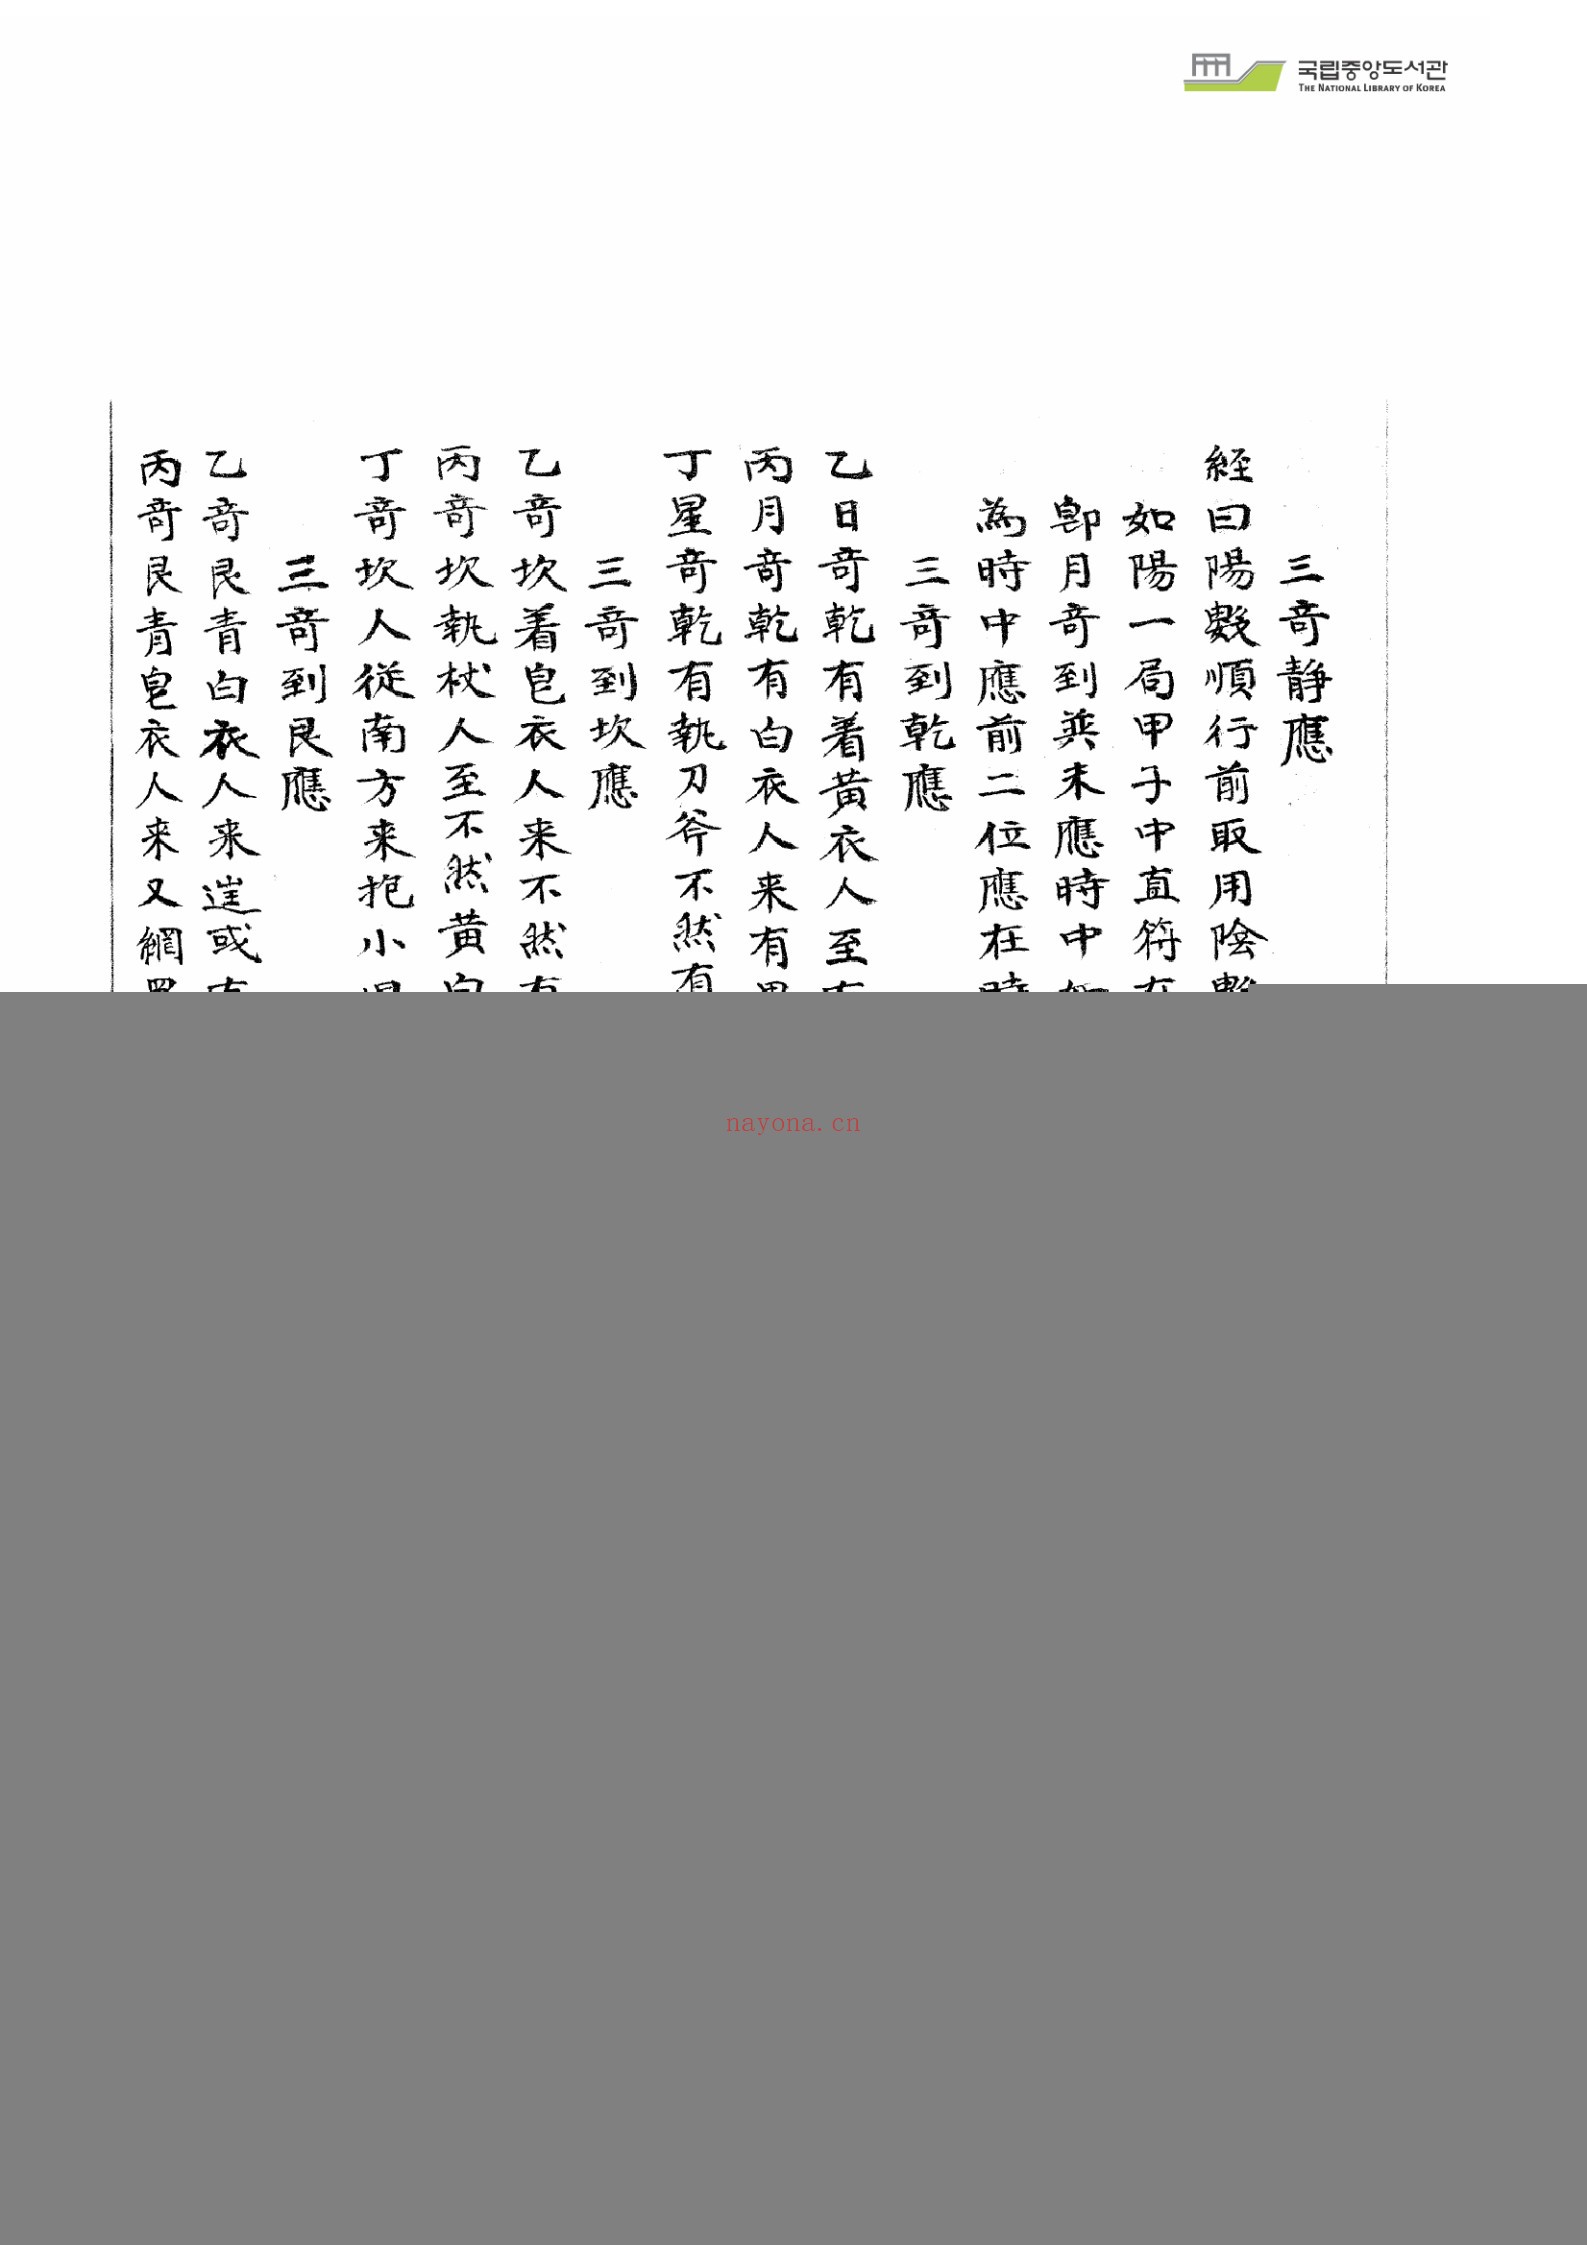 국립중앙도서관
THE NATIONAL LIBRARY OF KOREA
三奇静應
経曰陽數順行前取用陰
如陽一局甲子中直符
卽月奇到巽未應時中
為時中應前二位應在
三奇到乾應
乙日奇乾有着黄衣人至
丙月奇乾有白衣人来有
丁星奇乾有執刀斧不然有
三奇到坎應
乙奇坎着皂衣人来不然
丙奇坎執杖人至不然黄
丁奇坎人従南方来抱小
三奇到艮應
乙奇艮青白衣人来逬或
丙奇艮青皂衣人来又網
nayona.cn